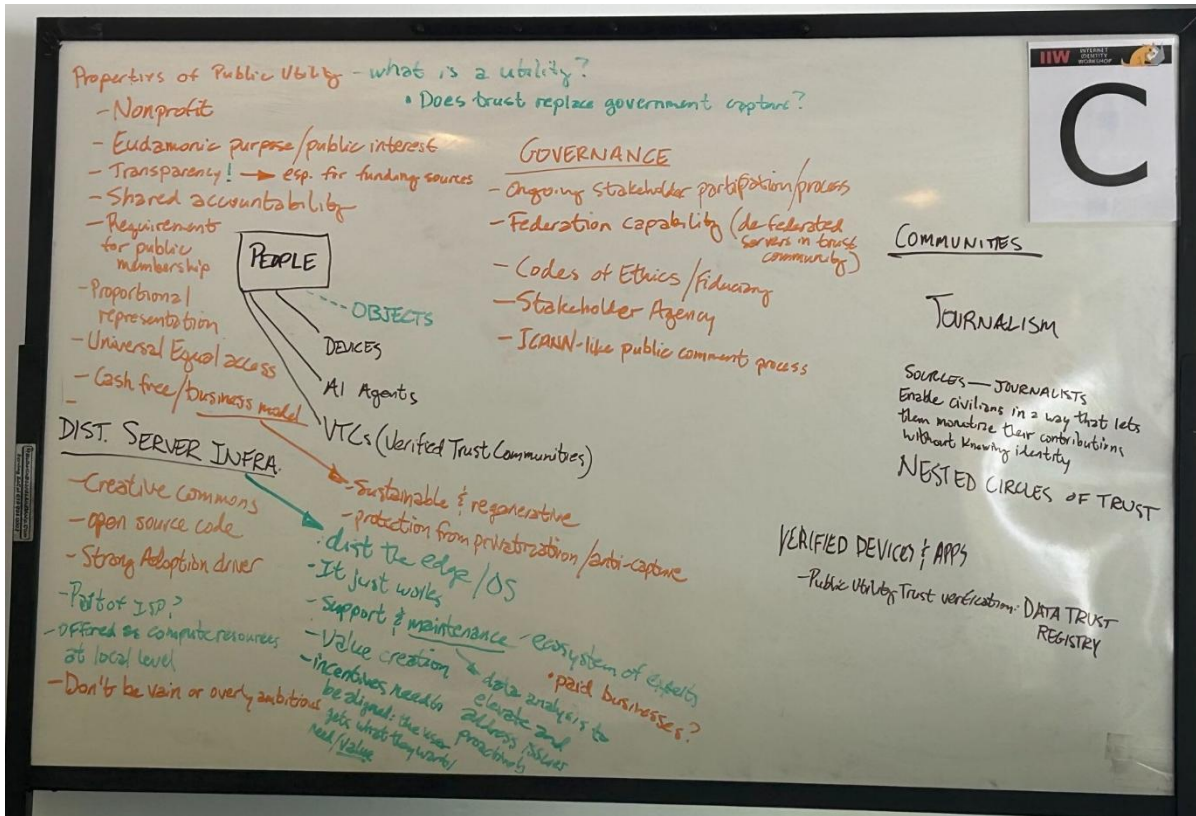 IIW INTERNET IDENTITY WORKSHOP
C
Properties of Public Utility - what is a utility?
• Does trust replace government capture?
- Nonprofit
- Eudamonic purpose/public interest
- Transparency! → esp. for funding sources
- Shared accountability
- Requirement
for public
membership
- Proportional
representation
- Universal Equal access
- Cash free/business model
PEOPLE
OBJECTS
DEVICES
AI Agents
VTCs (Verified Trust Communities)
- Sustainable & regenerative
- protection from privatization/anti-capture
GOVERNANCE
- Ongoing stakeholder partipation/process
- Federation capability (de-federated
servers in trust
community)
- Codes of Ethics/Fiduciary
- Stakeholder Agency
- ICANN-like public comment process
DIST. SERVER INFRA.
- Creative commons
- open source code
- Strong Adoption driver
- Part of ISP?
- offered as compute resources
at local level
- Don't be vain or overly ambitious
• dist the edge/OS
- It just works
- Support & maintenance - ecosystem of experts
• paid businesses?
- Value creation
data analysis to
elevate and
address issues
proactively
- incentives need to
be aligned: the user
gets what they want/
need/value
COMMUNITIES
JOURNALISM
SOURCES — JOURNALISTS
Enable civilians in a way that lets
them monetize their contributions
without knowing identity
NESTED CIRCLES OF TRUST
VERIFIED DEVICES & APPS
- Public Utility Trust verification: DATA TRUST
REGISTRY